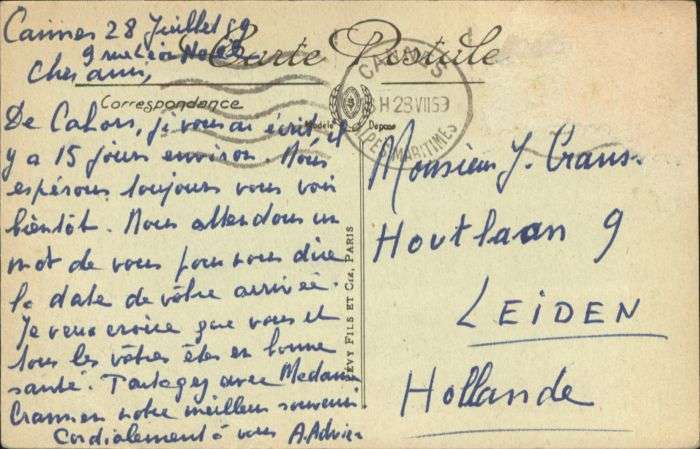 Cannes 28 Juillet 59
9 rue Léo
Cher ami,
Carte Postale
Correspondance
Modèle Déposé
CANNES
H 28 VII 59
ALPES MARITIMES
De Cahors, je vous ai écrit il
y a 15 jours environ. Nous
espérons toujours vous voir
bientôt. Nous attendons un
mot de vous pour nous dire
la date de vôtre arrivée.
Je veux croire que vous et
tous les vôtres êtes en bonne
santé. Partagez avec Madame
notre meilleur souvenir
Cordialement à vous A.
LÉVY FILS ET CIE, PARIS
Monsieur J. Crans.
Houtlaan 9
LEIDEN
Hollande